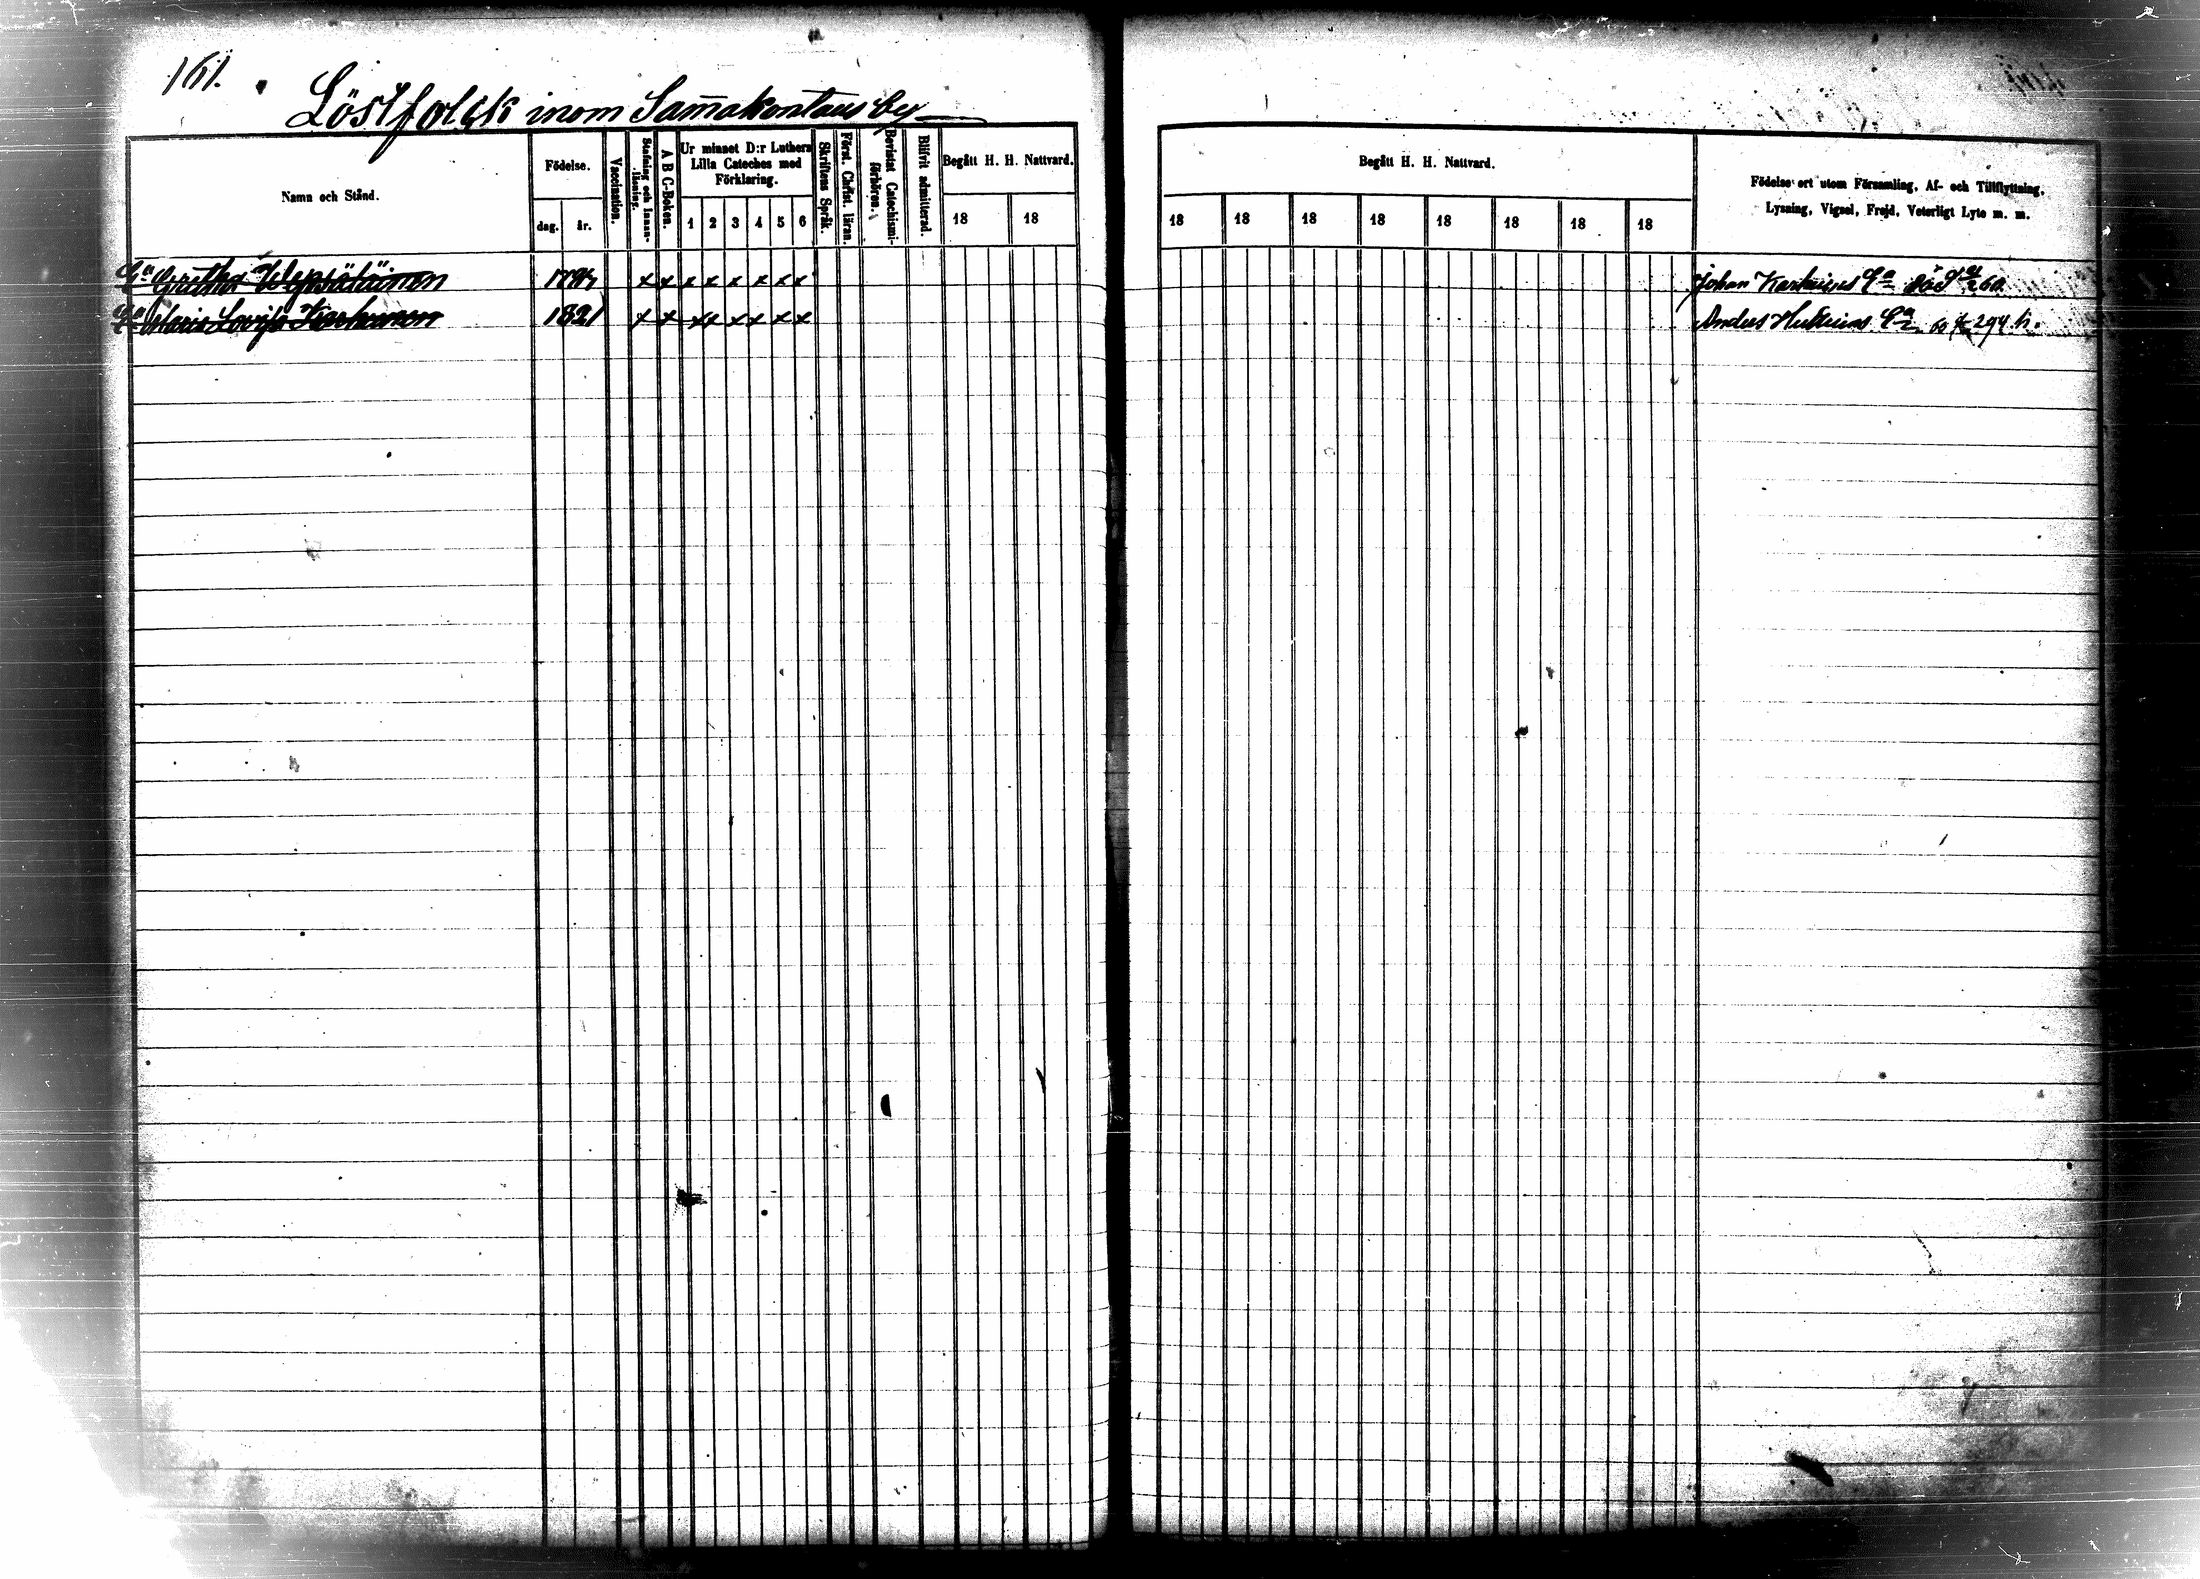 161.
Löstfolck inom Sammakontaus by
Namn och Stånd.
Födelse.
dag.
år.
Vaccination.
Stafning och Innanläsning.
A B C-Boken.
Ur minnet D:r Luthers Lilla Cateches med Förklaring.
1 2 3 4 5 6
Skriftens Språk.
Först. Christ. läran.
Bevistat Catechismi-förhören.
Blifvit admitterad.
Begått H. H. Nattvard.
18 18
Begått H. H. Nattvard.
18 18 18 18 18 18 18 18
Födelse ort utom Församling, Af- och Tillflyttning,
Lysning, Vigsel, Frejd, Veterligt Lyte m. m.
Ea Gretha x x x x x x x x Johan Ea död 60
Ea Maria Lovisa 1821 x x x x x x x x Anders Ea 60 294 h.